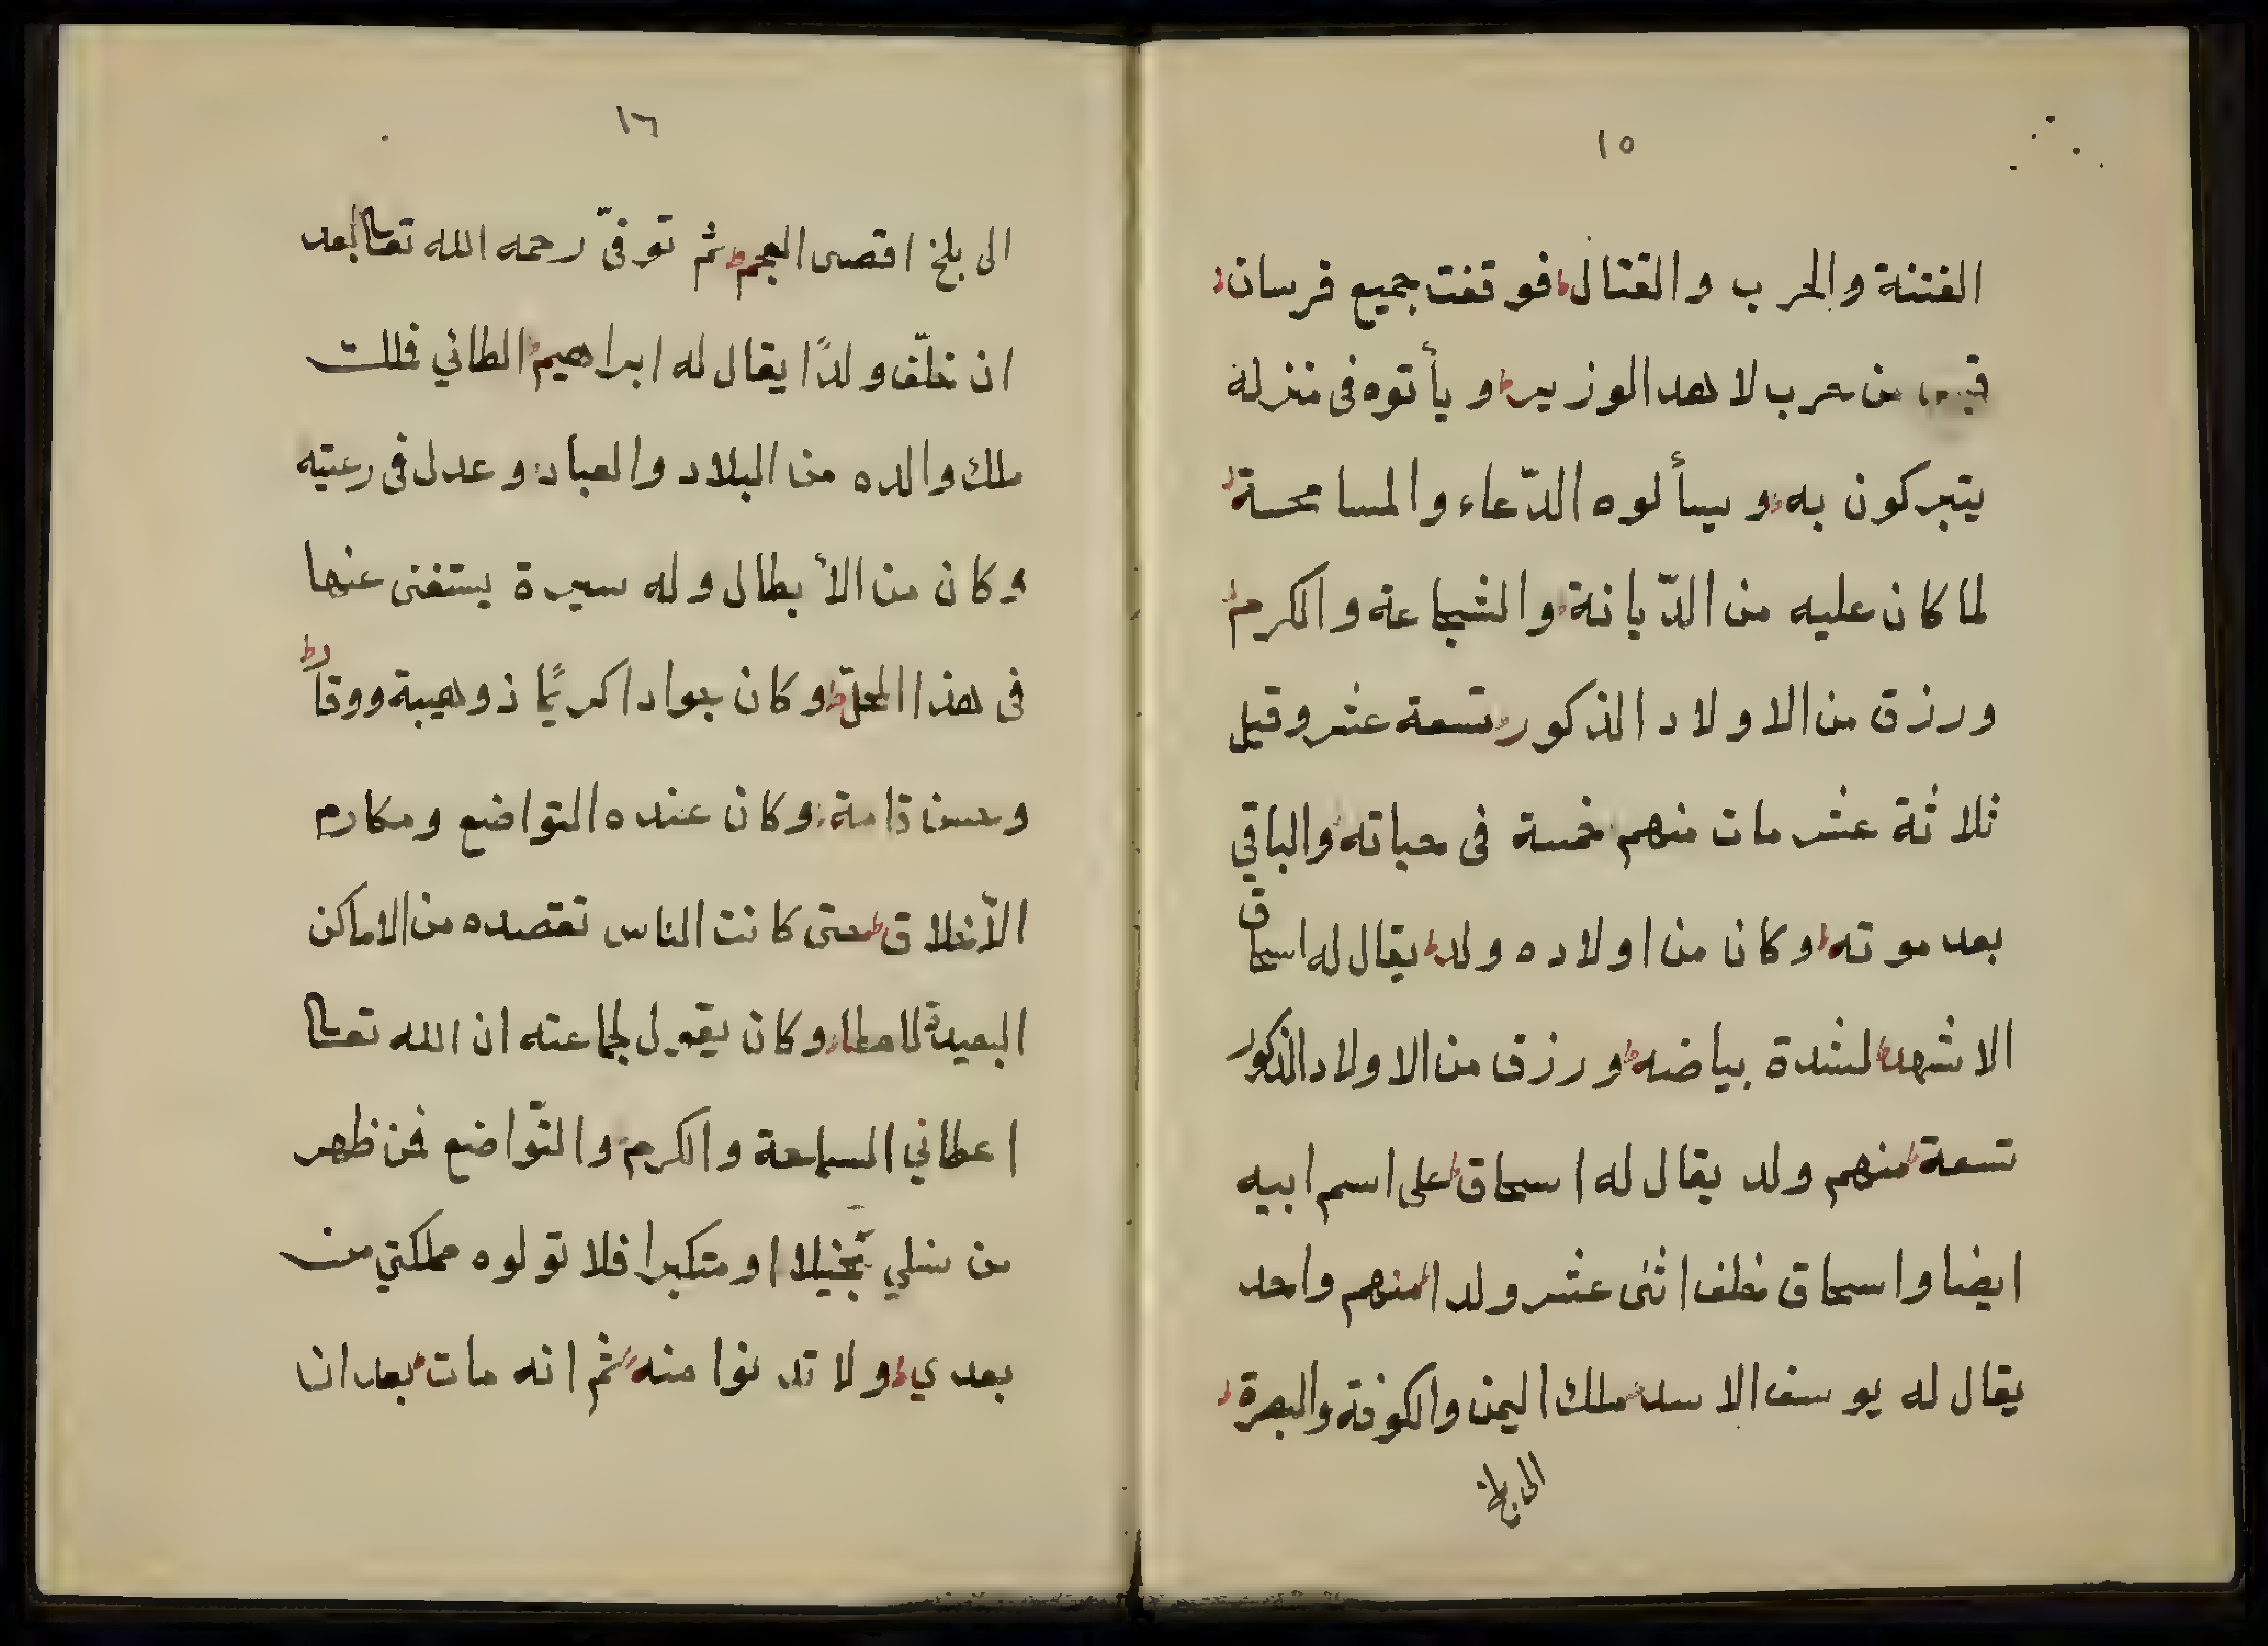 ١٥
الفتنة والحرب والقتال فوقفت جميع فرسان
من حرب لاهد الوزير ويأتوه فى منزله
يتبركون به ويسألوه الدّعاء والمسامحة
لما كان عليه من الدّيانة والشجاعة والكرم
ورزق من الاولاد الذكور تسعة عشر وقيل
ثلاثة عشر مات منهم خمسة فى حياته والباقي
بعد موته وكان من اولاده ولد يقال له اسحاق
الاشهد لشدة بياضه ورزق من الاولاد الذكور
تسعة منهم ولد يقال له اسحاق على اسم ابيه
ايضا واسحاق خلف اثنى عشر ولدا منهم واحد
يقال له يوسف الاسد ملك اليمن والكوفة والبصرة
الى بلخ
١٦
الى بلخ اقصى العجم ثم توفىّ رحمه الله تعالى بعد
ان خلّف ولدًا يقال له ابراهيم الطائي فملك
ملك والده من البلاد والعباد وعدل فى رعيته
وكان من الأبطال وله سيرة يستغنى عنها
فى هذا المحلّ وكان جوادا كريمًا ذو هيبة ووقاًر
وحسن قامة وكان عنده التواضع ومكارم
الأخلاق حتى كانت الناس تقصده من الاماكن
البعيدة للعطا وكان يقول لجماعته ان الله تعالى
اعطاني السماحة والكرم والتّواضع فمن ظهر
من نسلي بخيلا او متكبرا فلا تولوه مملكتي من
بعدي ولا تدنوا منه ثم انه مات بعد ان